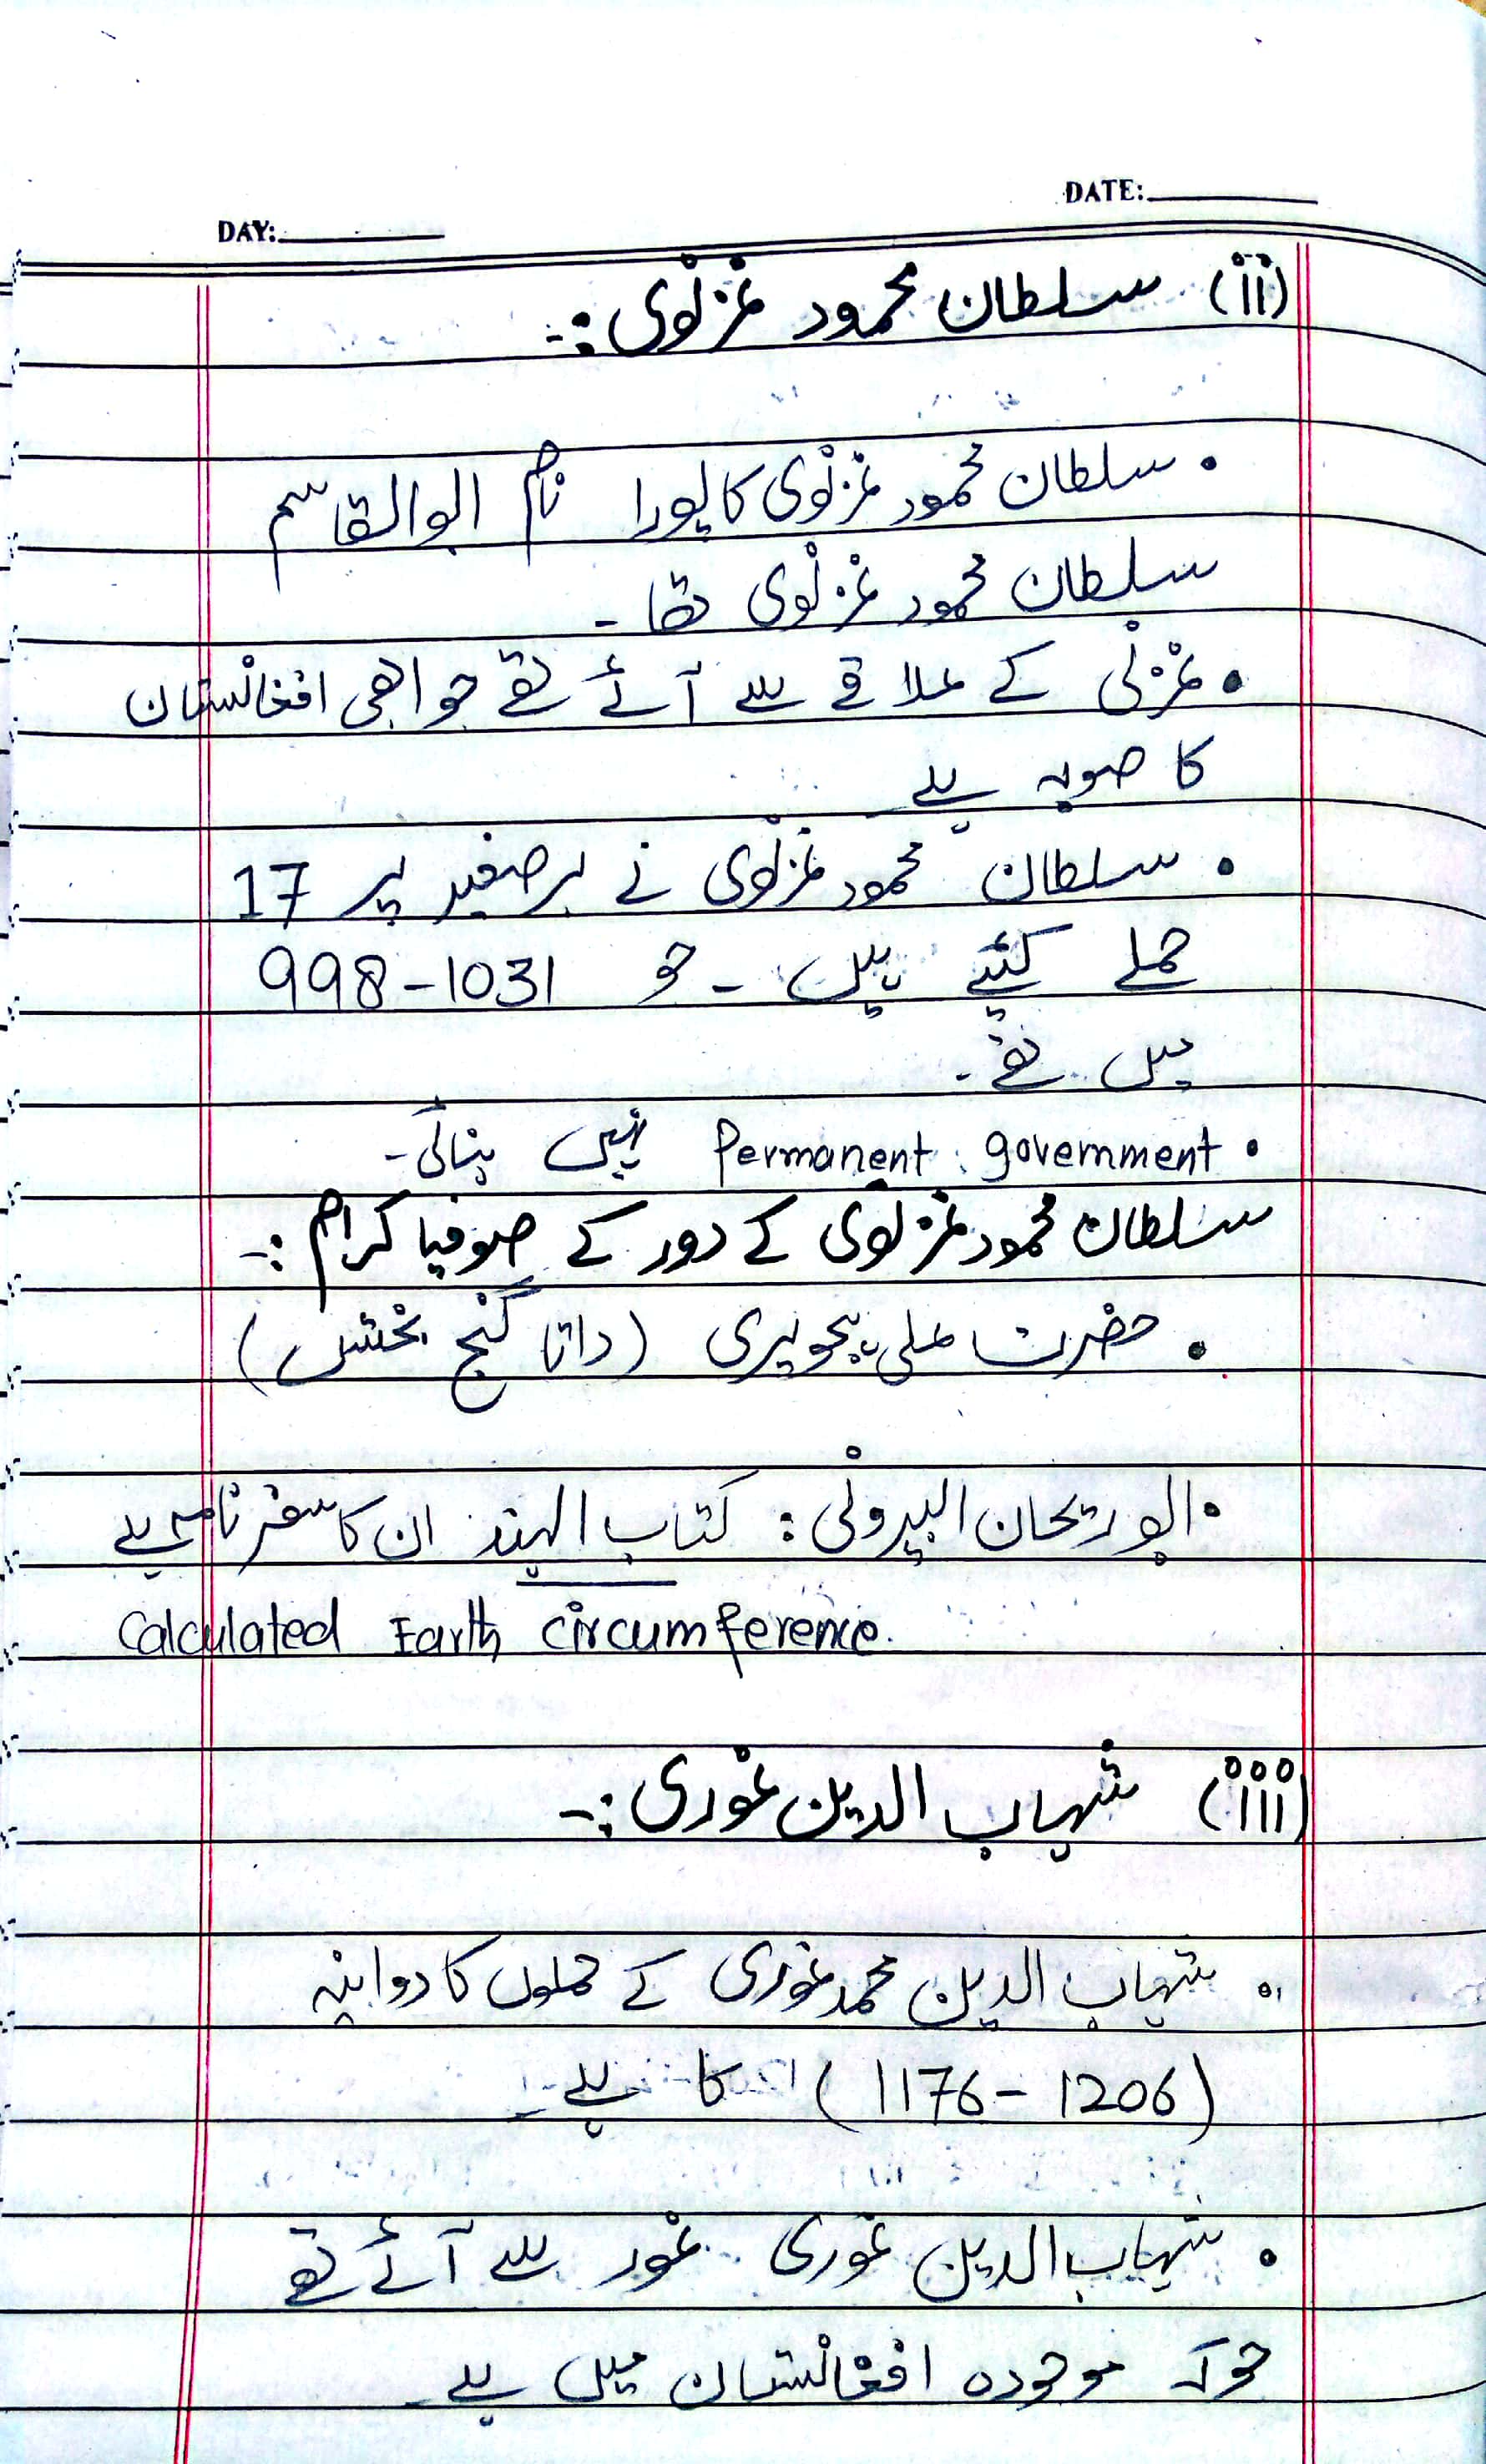 DATE:
DAY:
(ii) سلطان محمود غزنوی :-
• سلطان محمود غزنوی کا پورا نام ابوالقاسم
سلطان محمود غزنوی تھا -
• غزنی کے علاقے سے آئے تھے جو ابھی افغانستان
کا صوبہ ہے
• سلطان محمود غزنوی نے برصغیر پر 17
حملے کیئے ہیں - جو 998-1031
میں تھے -
• Permanent government نہیں بنائی -
سلطان محمود غزنوی کے دور کے صوفیا کرام :-
• حضرت علی ہجویری (داتا گنج بخش)
• ابو ریحان البیرونی : کتاب الہند ان کا سفر نامہ ہے
Calculated Earth circumference.
(iii) شہاب الدین غوری :-
• شہاب الدین محمد غوری کے حملوں کا دوانیہ
(1176-1206) کا ہے -
• شہاب الدین غوری غور سے آئے تھے
جو کہ موجودہ افغانستان میں ہے -